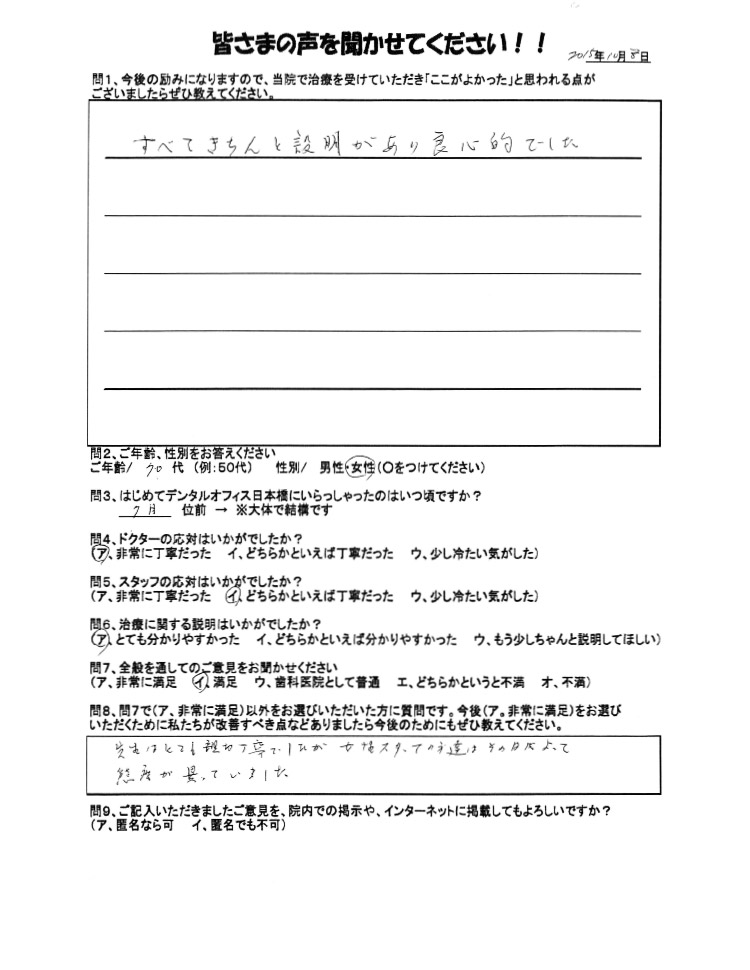 皆さまの声を聞かせてください！！
2015年10月8日
問1、今後の励みになりますので、当院で治療を受けていただき「ここがよかった」と思われる点が
ございましたらぜひ教えてください。
すべてきちんと説明があり良心的でした
問2、ご年齢、性別をお答えください
ご年齢/ 代 （例：50代） 性別/ 男性・女性（○をつけてください）
問3、はじめてデンタルオフィス日本橋にいらっしゃったのはいつ頃ですか？
7月 位前 → ※大体で結構です
問4、ドクターの応対はいかがでしたか？
（ア、非常に丁寧だった イ、どちらかといえば丁寧だった ウ、少し冷たい気がした）
問5、スタッフの応対はいかがでしたか？
（ア、非常に丁寧だった イ、どちらかといえば丁寧だった ウ、少し冷たい気がした）
問6、治療に関する説明はいかがでしたか？
（ア、とても分かりやすかった イ、どちらかといえば分かりやすかった ウ、もう少しちゃんと説明してほしい）
問7、全般を通してのご意見をお聞かせください
（ア、非常に満足 イ、満足 ウ、歯科医院として普通 エ、どちらかというと不満 オ、不満）
問8、問7で（ア、非常に満足）以外をお選びいただいた方に質問です。今後（ア。非常に満足）をお選び
いただくために私たちが改善すべき点などありましたら今後のためにもぜひ教えてください。
先生はとても親切丁寧でしたが 女性スタッフの方達はその日によって
態度が異っていました
問9、ご記入いただきましたご意見を、院内での掲示や、インターネットに掲載してもよろしいですか？
（ア、匿名なら可 イ、匿名でも不可）